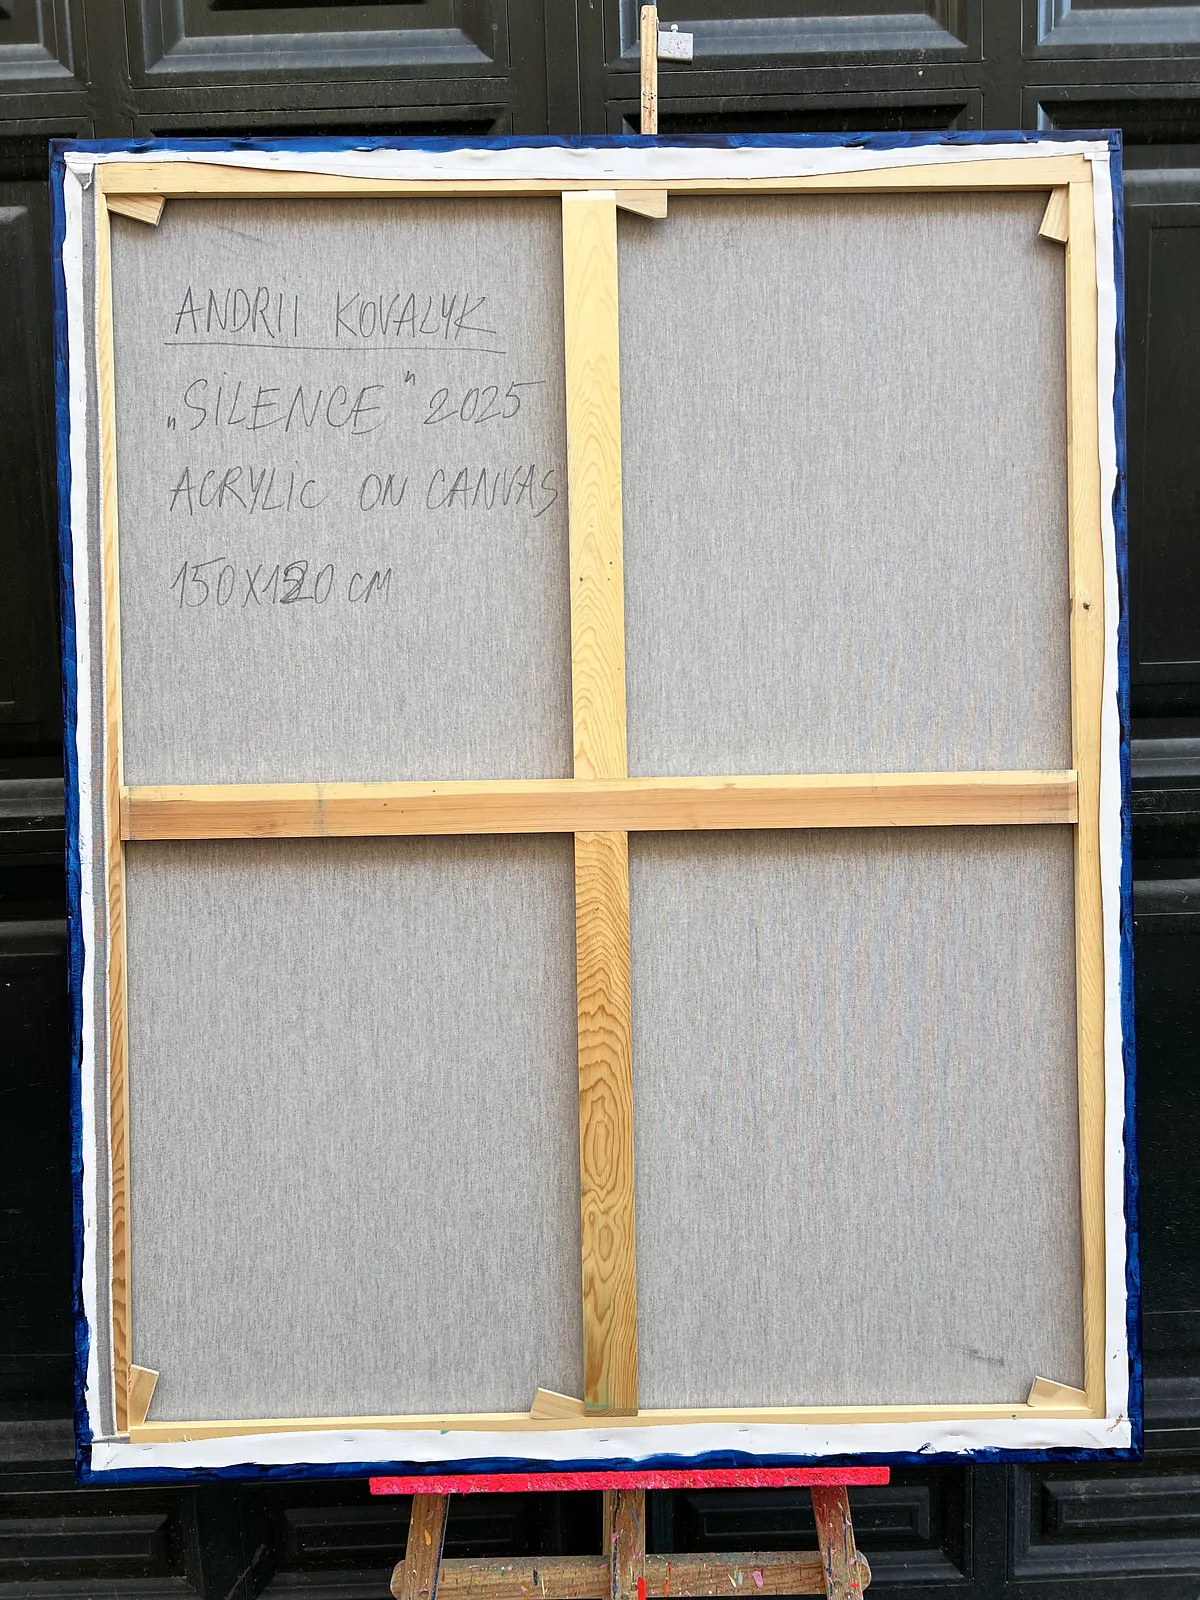 ANDRII KOVALYK
„SILENCE" 2025
ACRYLIC ON CANVAS
150X120 CM